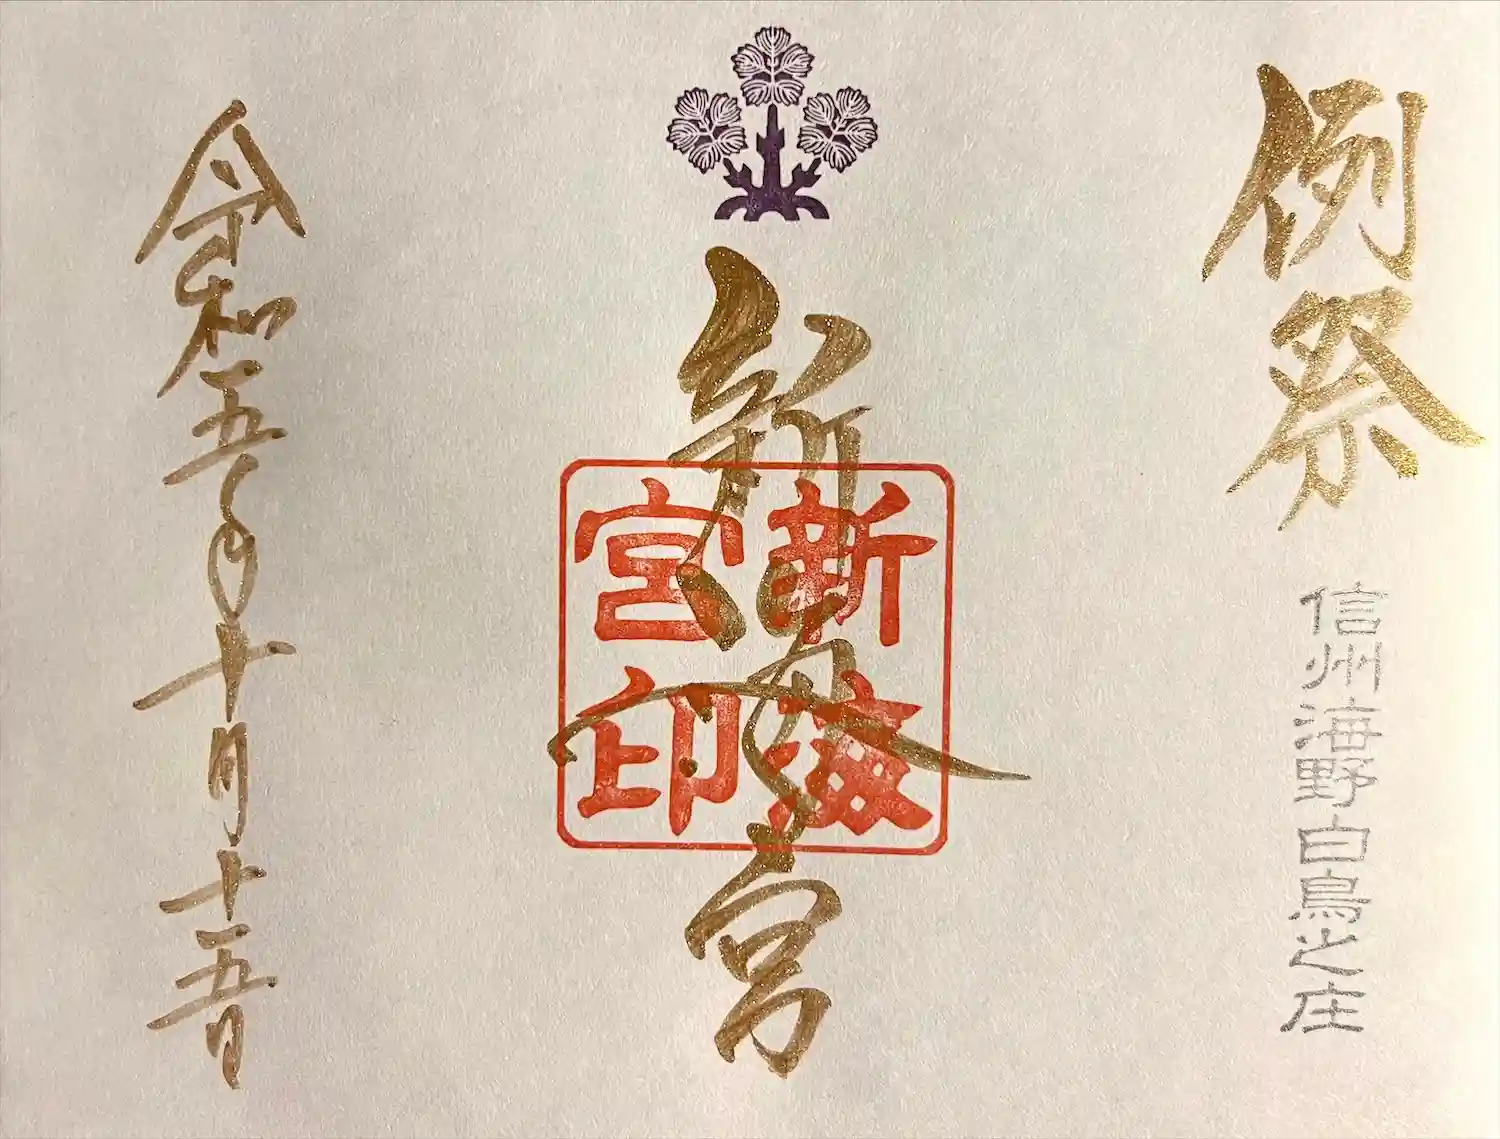 例祭
信州海野白鳥之庄
新海宮
新海宮印
令和五年十月十五日